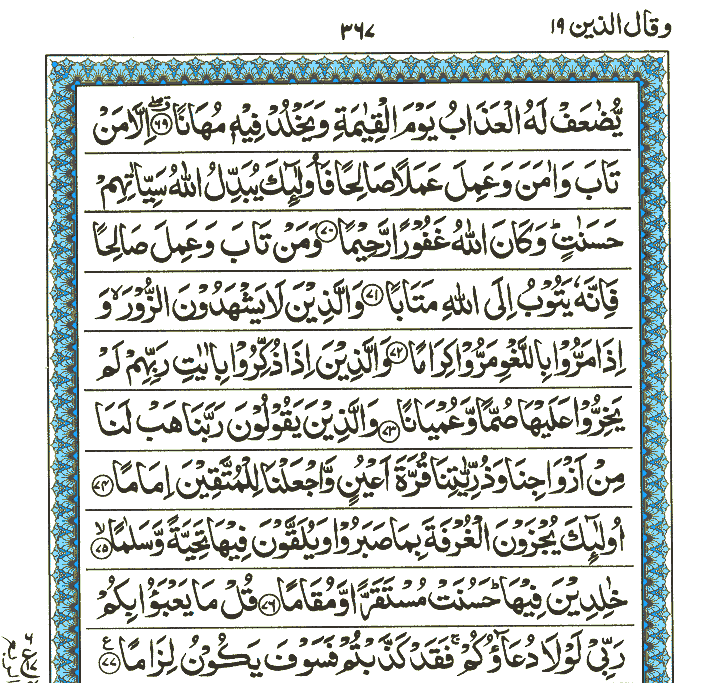 وقال الذين ١٩
٣٦٧
يُّضٰعَفْ لَهُ الْعَذَابُ يَوْمَ الْقِيٰمَةِ وَيَخْلُدْ فِيْهٖ مُهَانًا ﴿٦٩﴾ اِلَّا مَنْ
تَابَ وَاٰمَنَ وَعَمِلَ عَمَلًا صَالِحًا فَاُولٰٓئِكَ يُبَدِّلُ اللّٰهُ سَيِّاٰتِهِمْ
حَسَنٰتٍ ؕ وَكَانَ اللّٰهُ غَفُوْرًا رَّحِيْمًا ﴿٧٠﴾ وَمَنْ تَابَ وَعَمِلَ صَالِحًا
فَاِنَّهٗ يَتُوْبُ اِلَى اللّٰهِ مَتَابًا ﴿٧١﴾ وَالَّذِيْنَ لَا يَشْهَدُوْنَ الزُّوْرَ ۙ وَ
اِذَا مَرُّوْا بِاللَّغْوِ مَرُّوْا كِرَامًا ﴿٧٢﴾ وَالَّذِيْنَ اِذَا ذُكِّرُوْا بِاٰيٰتِ رَبِّهِمْ لَمْ
يَخِرُّوْا عَلَيْهَا صُمًّا وَّعُمْيَانًا ﴿٧٣﴾ وَالَّذِيْنَ يَقُوْلُوْنَ رَبَّنَا هَبْ لَنَا
مِنْ اَزْوَاجِنَا وَذُرِّيّٰتِنَا قُرَّةَ اَعْيُنٍ وَّاجْعَلْنَا لِلْمُتَّقِيْنَ اِمَامًا ﴿٧٤﴾
اُولٰٓئِكَ يُجْزَوْنَ الْغُرْفَةَ بِمَا صَبَرُوْا وَيُلَقَّوْنَ فِيْهَا تَحِيَّةً وَّسَلٰمًا ۙ﴿٧٥﴾
خٰلِدِيْنَ فِيْهَا ؕ حَسُنَتْ مُسْتَقَرًّا وَّمُقَامًا ﴿٧٦﴾ قُلْ مَا يَعْبَؤُا بِكُمْ
رَبِّيْ لَوْلَا دُعَآؤُكُمْ ۚ فَقَدْ كَذَّبْتُمْ فَسَوْفَ يَكُوْنُ لِزَامًا ﴿٧٧﴾ ع